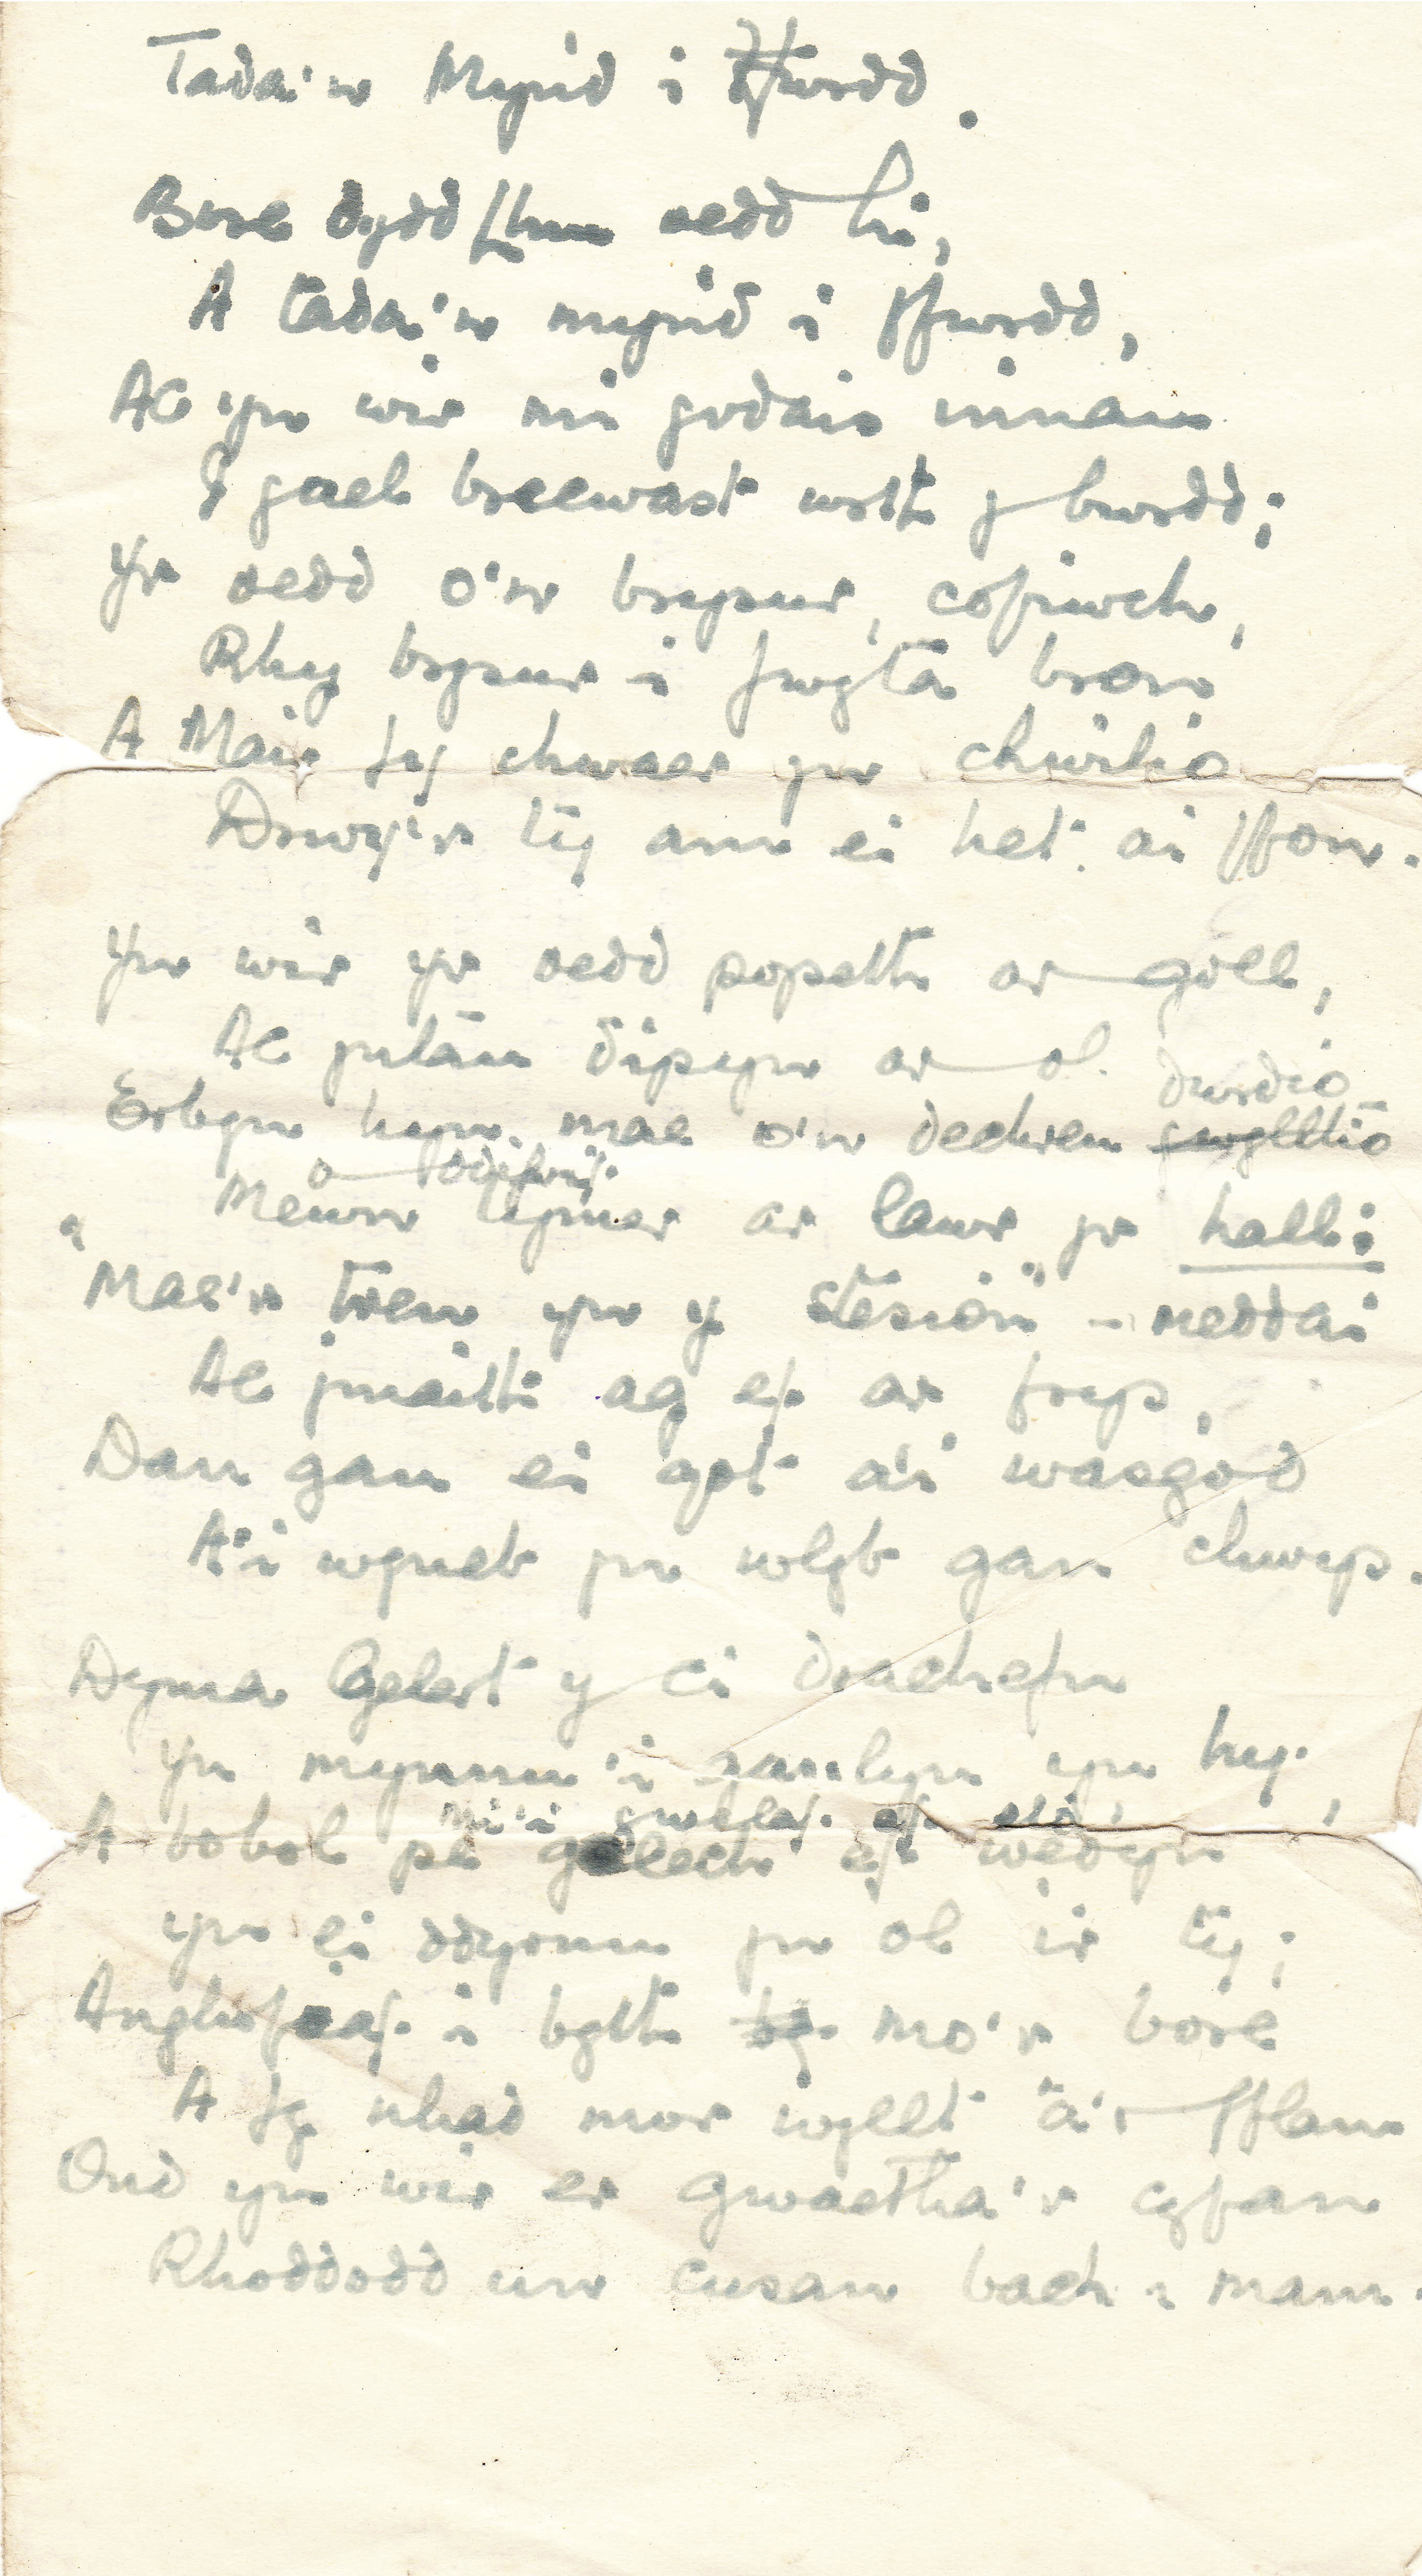 Tada'n Mynd i Ffwrdd.
Bore dydd Llun oedd hi,
A tada'n mynd i ffwrdd,
Ac yn wir mi godais innau
I gael brecwast wrth y bwrdd;
Yr oedd o'n brysur, cofiwch,
Rhy brysur i fwyta bron
A Mair fy chwaer yn chwilio
Drwy'r tŷ am ei het ai ffon.
Yn wir yr oedd popeth ar goll,
Ac yntau dipyn ar ol.
dwrdio
Erbyn hyn mae o'n dechreu gwylltio
o ddifrif
Mewn tymer ar lawr yr hall:
"Mae'r tren yn y stesion" - meddai
Ac ymaith ag ef ar frys,
Dan gau ei got a'i wasgod
A'i wyneb yn wlyb gan chwys.
Dyma Gelert y ci drachefn
Yn mynnu 'i ganlyn yn hy,
ni'i gwelaf ef eto,
A bobol pe gwelech ef wedyn
yn ei ddyrnu yn ol i'r tŷ;
Anghofiaf i byth by mo'r bore
A fy nhad mor wyllt â'r fflam
Ond yn wir er gwaetha'r cyfan
Rhoddodd un cusan bach i mam.